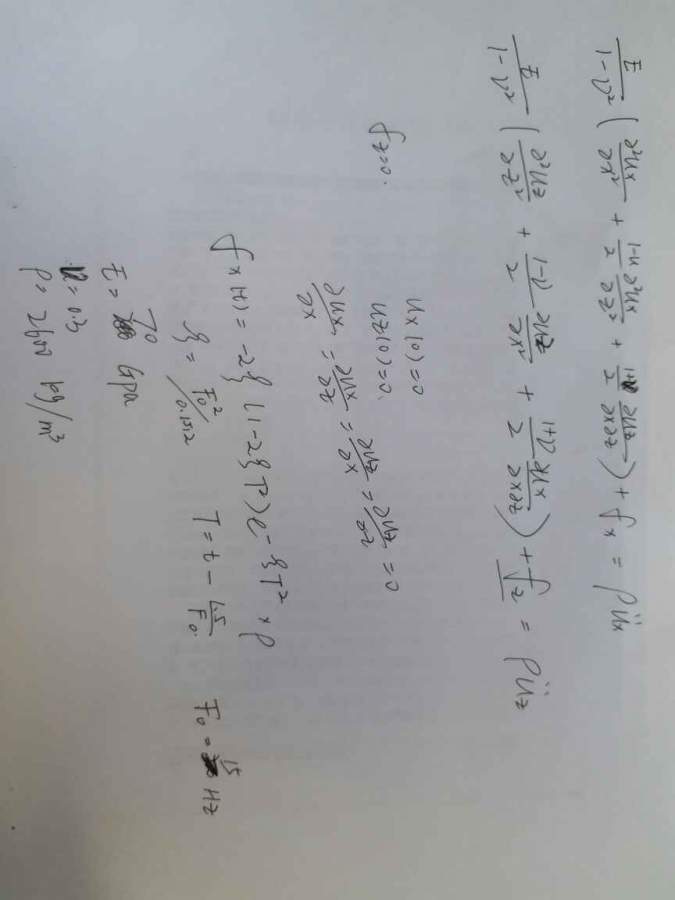 E/(1-ν²) ( ∂²ux/∂x² + (1-ν)/2 ∂²ux/∂z² + (1+ν)/2 ∂²uz/∂x∂z ) + fx = ρüx
E/(1-ν²) ( ∂²uz/∂z² + (1-ν)/2 ∂²uz/∂x² + (1+ν)/2 ∂²ux/∂x∂z ) + fz = ρüz
fz=0.
ux(0)=0
uz(0)=0.
∂ux/∂x = ∂ux/∂z = ∂uz/∂x = ∂uz/∂z = 0
fx(t) = -2ξ(1-2ξT²)e^(-ξT²) × ρ
ξ = F0²/0.1512 T = t - 1.5/F0 F0 = 15 Hz
E = 70 Gpa
= 0.3
ρ = 2600 kg/m³